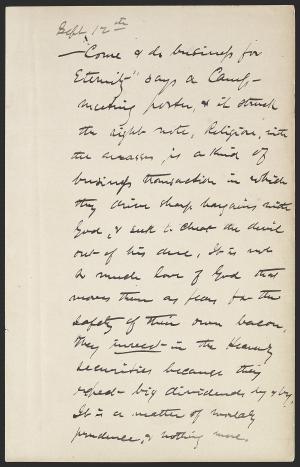 Sept. 12th
— "Come & do business for
Eternity" says a Camp-
meeting poster, & it struck
the right note, Religion, with
the masses, is a kind of
business transaction in which
they drive sharp bargains with
God, & seek to cheat the devil
out of his due, It is not
so much love of God that
moves them as fear for the
safety of their own bacon.
They invest in the Heavenly
securities because they
expect big dividends by & by.
It is a matter of worldly
prudence, & nothing more